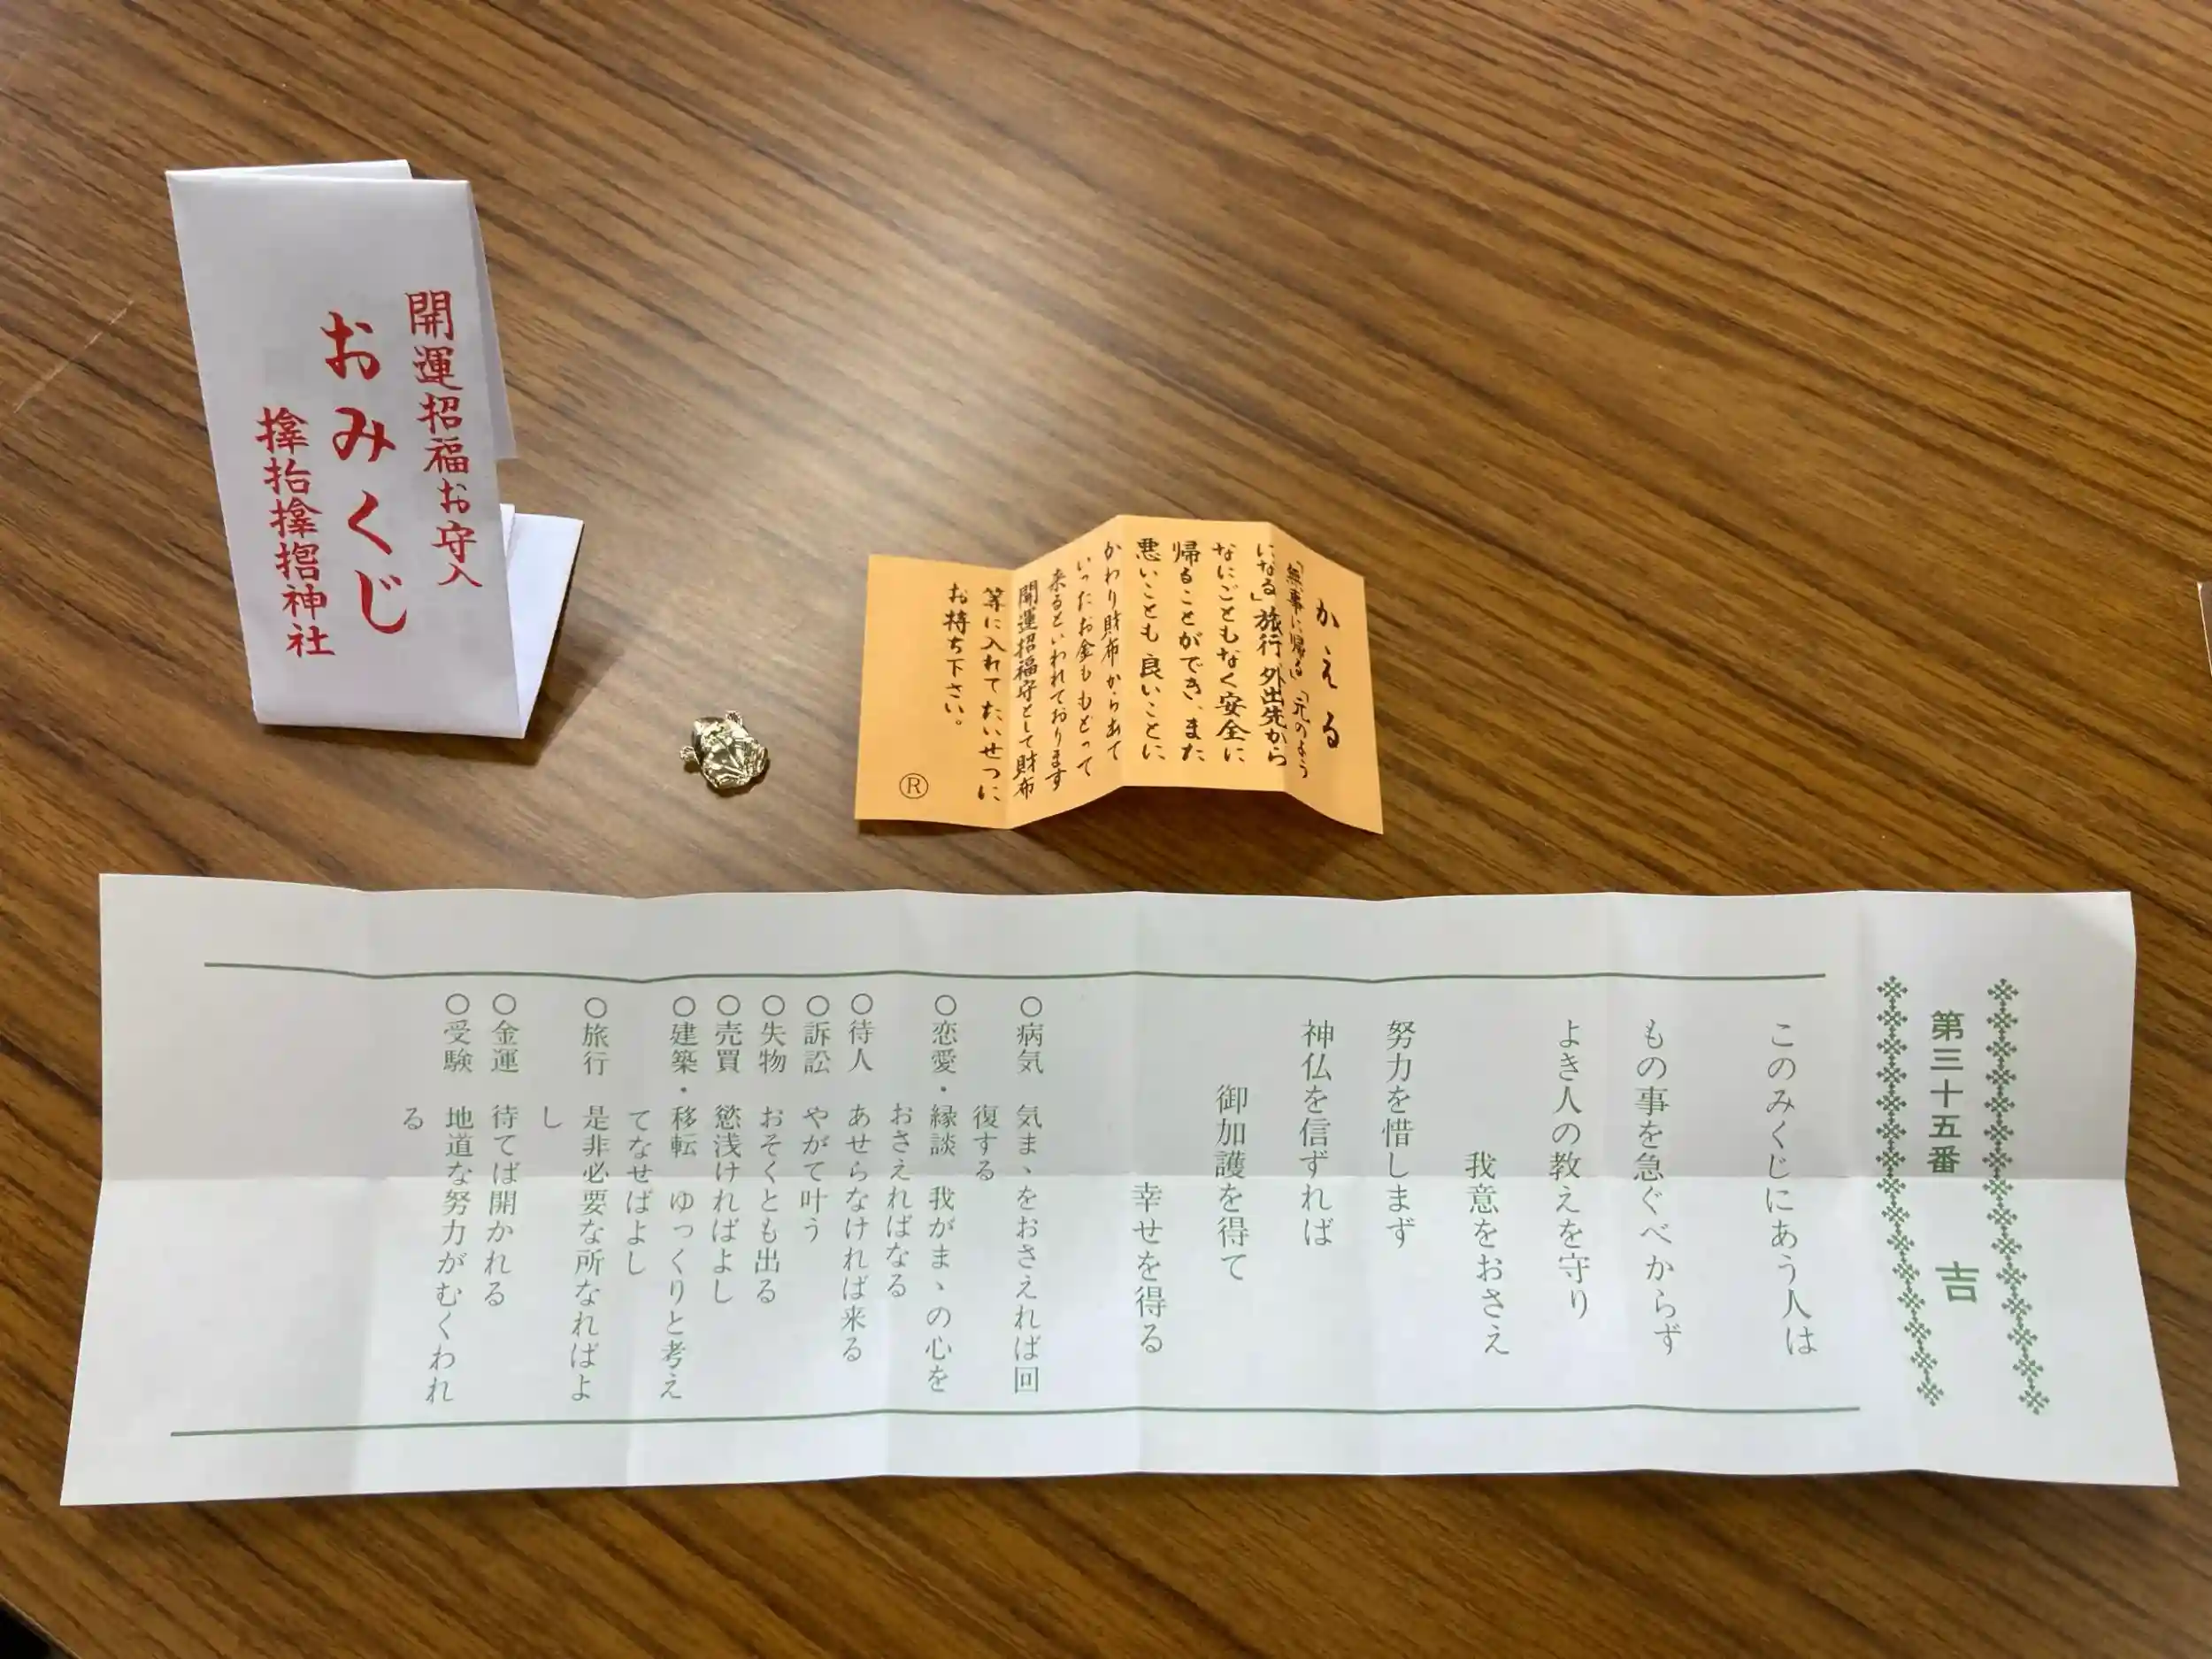 開運招福お守入
おみくじ
神社
かえる
「無事に帰る」「元のよう
になる」旅行 外出先から
なにごともなく安全に
帰ることができ、また
悪いことも 良いことに
かわり財布からあて
いったお金も もどって
来るといわれております
開運招福守として財布
等に入れて たいせつに
お持ち下さい。
Ⓡ
第三十五番 吉
このみくじにあう人は
もの事を急ぐべからず
よき人の教えを守り
我意をおさえ
努力を惜しまず
神仏を信ずれば
御加護を得て
幸せを得る
○病気 気まゝをおさえれば回
復する
○恋愛・縁談 我がまゝの心を
おさえればなる
○待人 あせらなければ来る
○訴訟 やがて叶う
○失物 おそくとも出る
○売買 慾浅ければよし
○建築・移転 ゆっくりと考え
てなせばよし
○旅行 是非必要な所なればよ
し
○金運 待てば開かれる
○受験 地道な努力がむくわれ
る